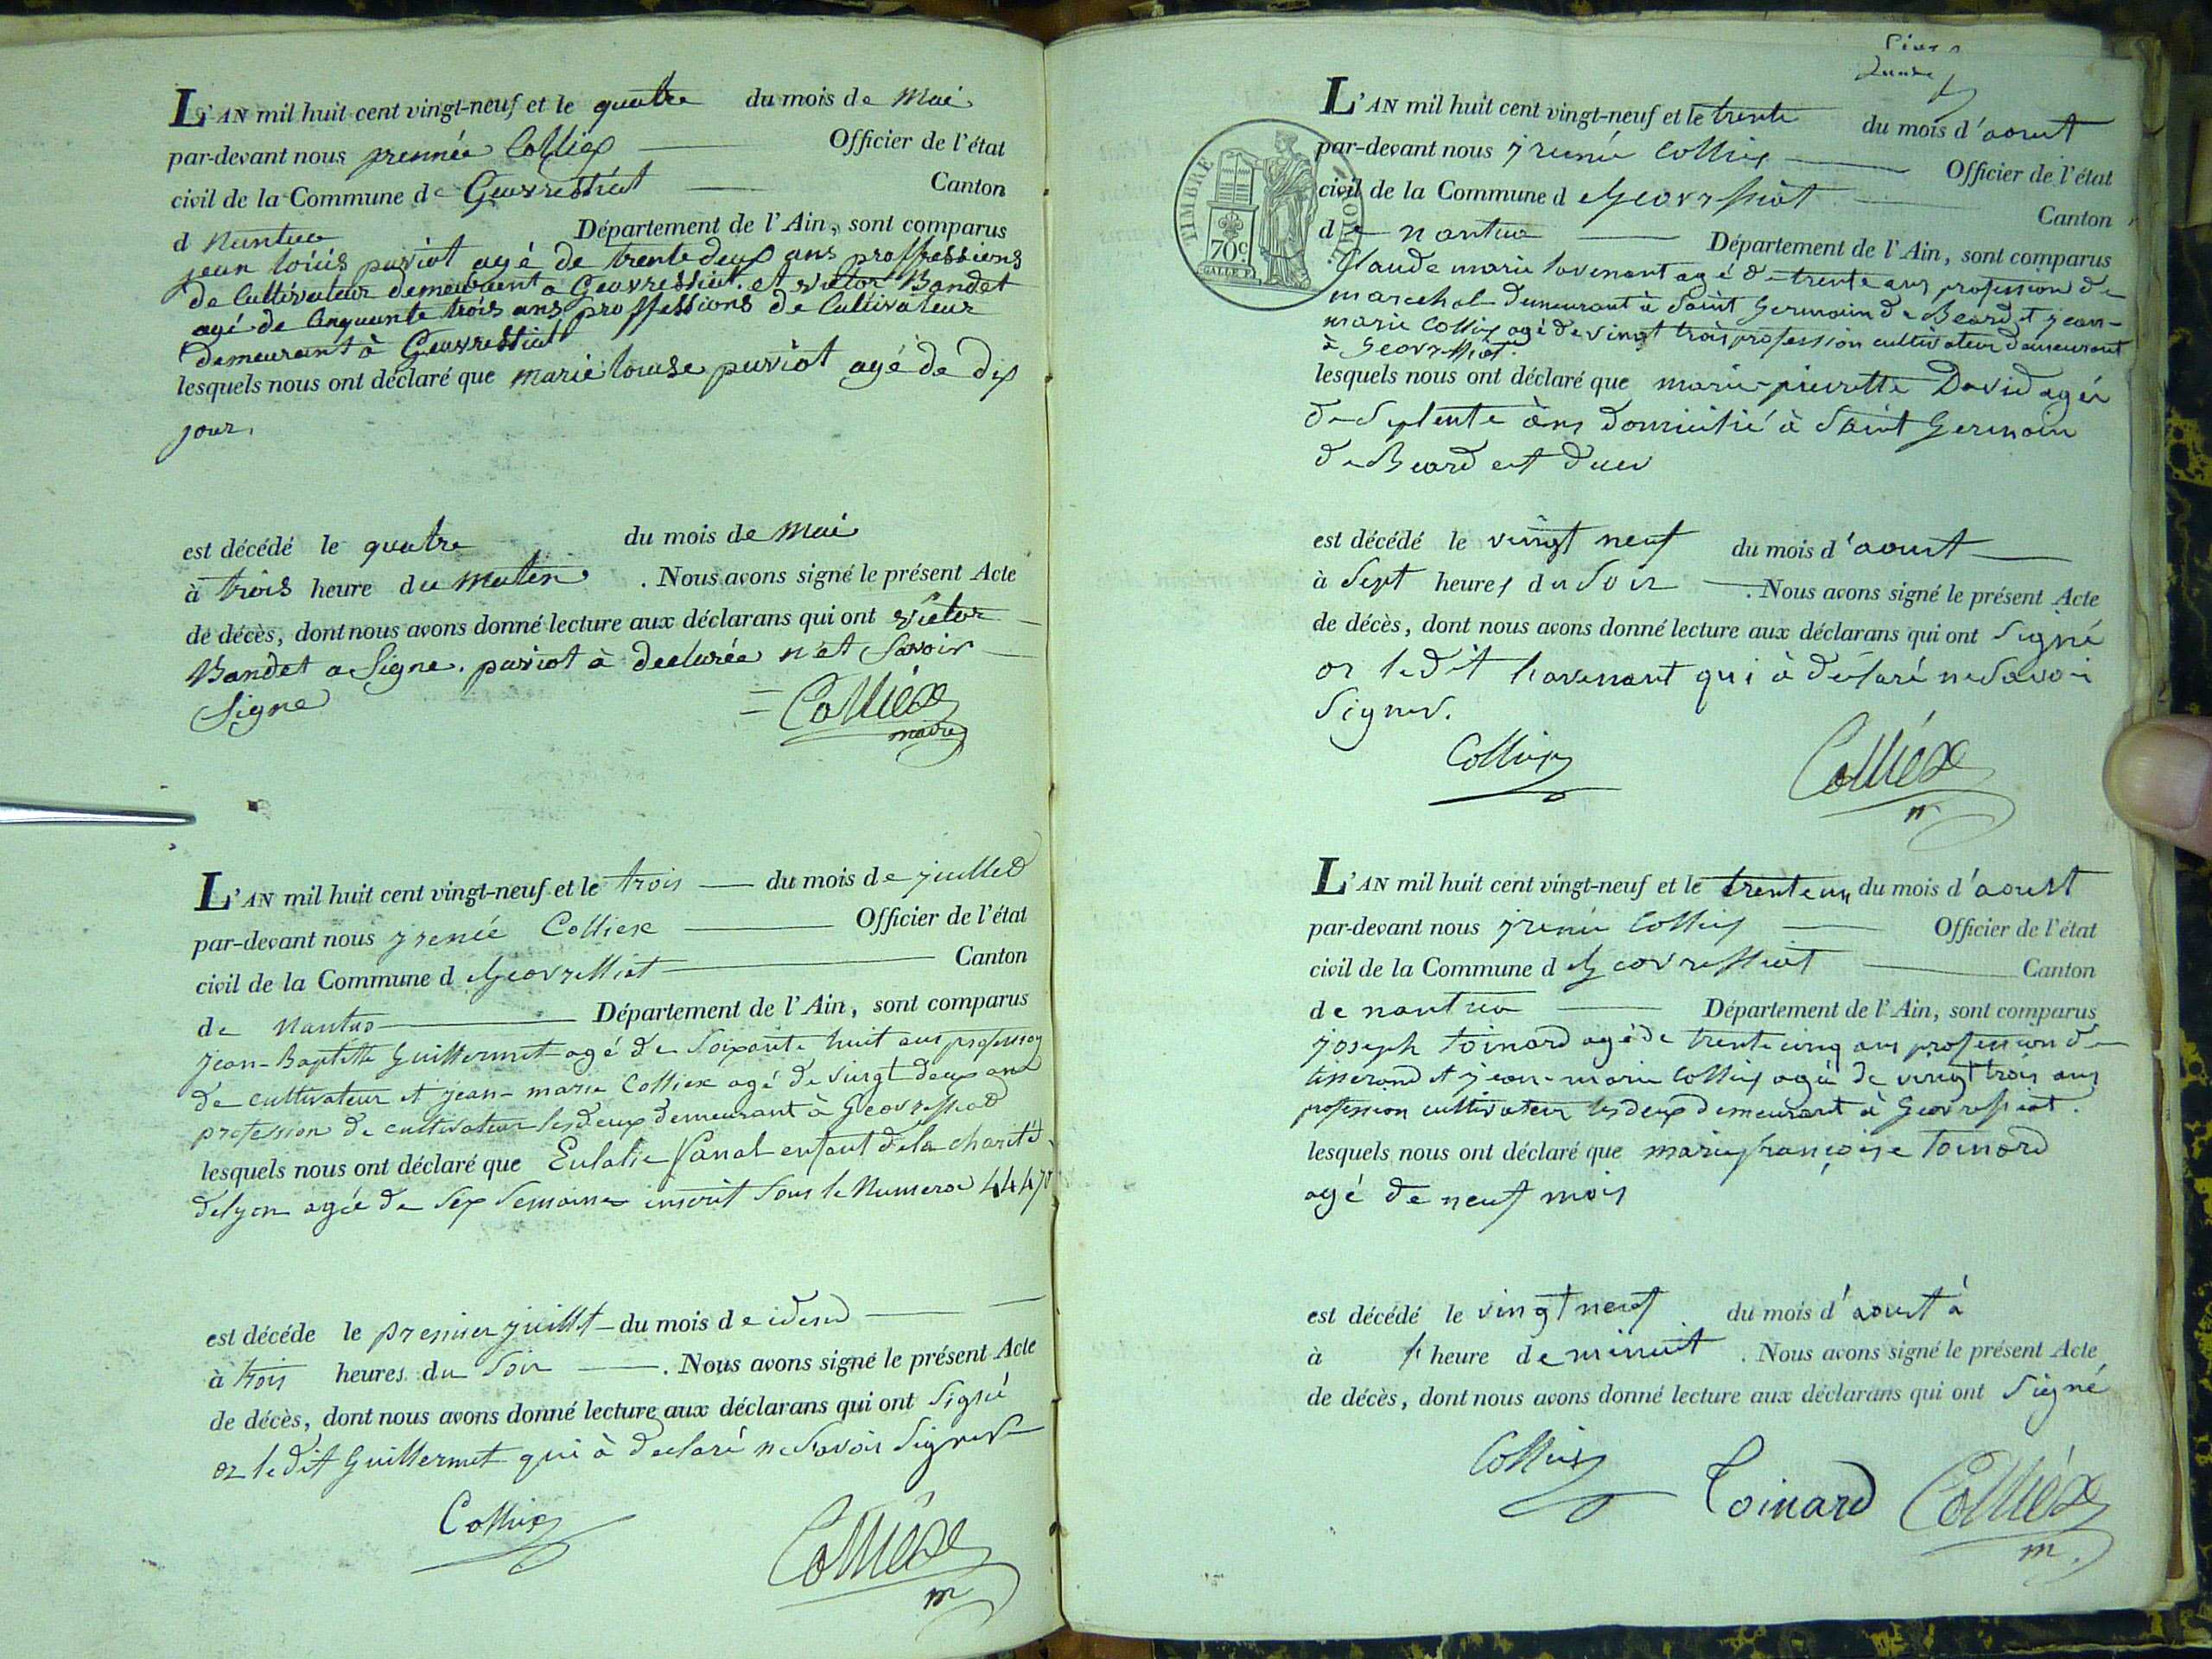 L'AN mil huit cent vingt-neuf et le quatre du mois de Mai
par-devant nous prennée Colliex Officier de l'état
civil de la Commune de Geovressiat Canton
d Nantua Département de l'Ain, sont comparus
jean loüis puviot agé de trente deux ans proffessions
de Cultivateur demeurent a Geovressiat. et victor Bandet
agé de Cinquente trois ans proffessions de Cultivateur
demeurant à Geovressiat
lesquels nous ont déclaré que marie louise puviot agé de dix
jour.
est décédé le quatre du mois de Mai
à trois heure du Matin . Nous avons signé le présent Acte
de décès, dont nous avons donné lecture aux déclarans qui ont victor
Bandet a Signe. puviot à declarée n'et Savoir
Signe
Colliéx
maire
L'AN mil huit cent vingt-neuf et le trois du mois de juillet
par-devant nous yrenée Colliex Officier de l'état
civil de la Commune d Geovressiat Canton
de Nantua Département de l'Ain, sont comparus
Jean-Baptiste Guillermet agé de Soixante huit ans profession
de cultivateur et jean-marie Colliex agé de vingt deux ans
profession de cultivateur les deux demeurant à Geovressiat
lesquels nous ont déclaré que Eulalie Canal enfant de la charité
de lyon agée de Sex Semaines inscrit Sous le Numero
est décéde le premier juillet du mois de idem
à trois heures du Soir . Nous avons signé le présent Acte
de décès, dont nous avons donné lecture aux déclarans qui ont Signé
or le dit Guillermet qui à declaré ne Savoir Signer
Colliex
Colliéx
m
L'AN mil huit cent vingt-neuf et le trente du mois d'aoust
par-devant nous yrenée Colliex Officier de l'état
civil de la Commune d Geovressiat Canton
de nantua Département de l'Ain, sont comparus
TIMBRE ROYAL
70c.
Claude marie lavenant agé de trente ans profession de
marechal demeurant à Saint Germain de Beard et jean-
marie Colliex agé de vingt trois profession cultivateur demeurant
à Geovressiat.
lesquels nous ont déclaré que marie-pierrette David agée
de Septente ans domicilié à Saint Germain
de Beard
est décédé le vingt neuf du mois d'aoust
à Sept heures du Soir . Nous avons signé le présent Acte
de décès, dont nous avons donné lecture aux déclarans qui ont Signé
or le dit lavenant qui à déclaré ne Savoir
Signer.
Colliex
Colliéx
m
L'AN mil huit cent vingt-neuf et le trente un du mois d'aoust
par-devant nous yrenée Colliex Officier de l'état
civil de la Commune d Geovressiat Canton
de nantua Département de l'Ain, sont comparus
joseph Toinard agé de trente cinq ans profession de
tisserand et jean-marie Colliex agé de vingt trois ans
profession cultivateur les deux demeurant à Geovressiat.
lesquels nous ont déclaré que marie françoise Toinard
agé de neuf mois
est décédé le vingt neuf du mois d'aoust à
à heure de minuit . Nous avons signé le présent Acte
de décès, dont nous avons donné lecture aux déclarans qui ont Signé
Colliex
Toinard
Colliéx
m.